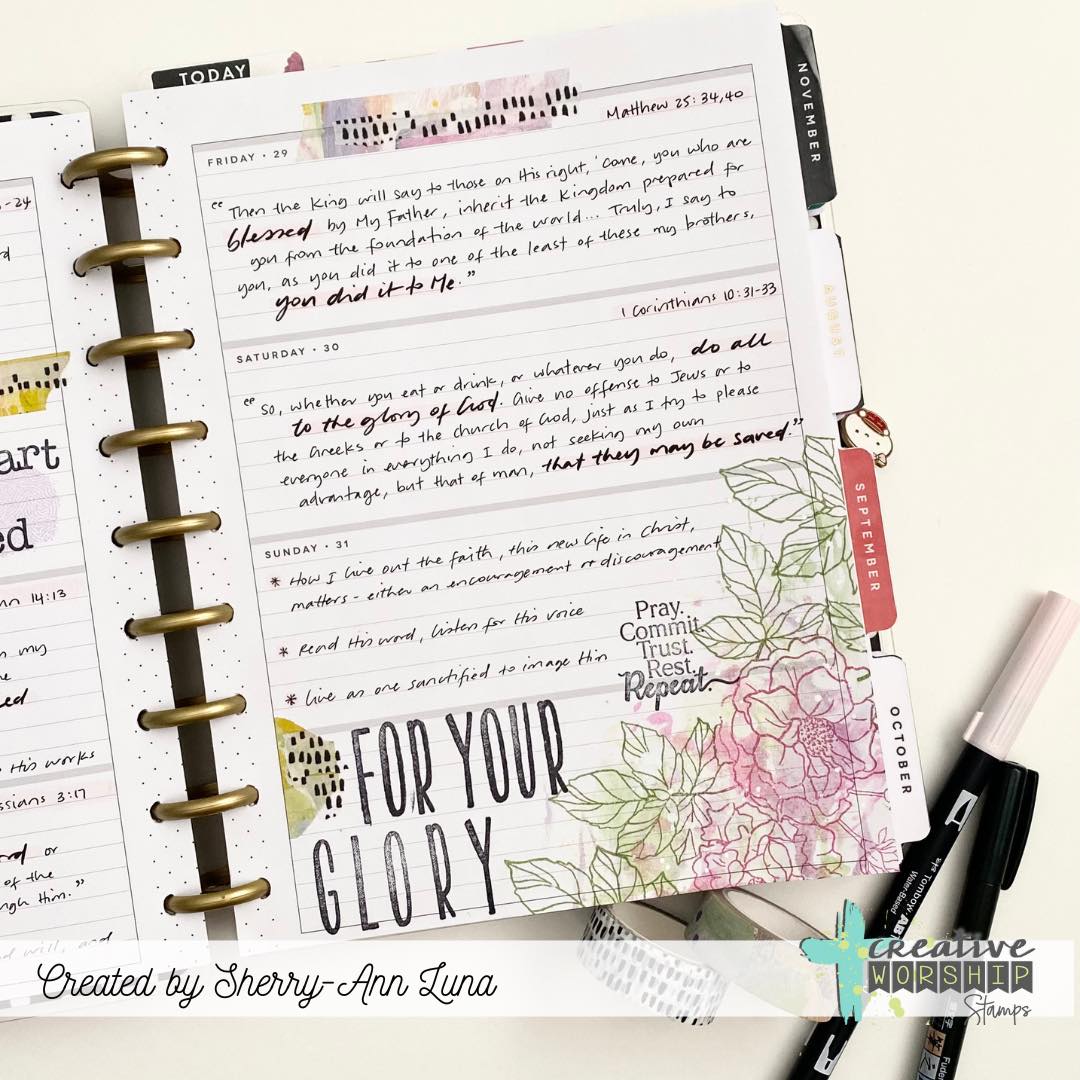 TODAY
-24
art
ed
14:13
my
His works
ssians 3:17
or
of the
ugh Him.”
will, and
FRIDAY • 29
Matthew 25:34,40
“Then the King will say to those on His right, ‘Come, you who are
blessed by My Father, inherit the Kingdom prepared for
you from the foundation of the world... Truly, I say to
you, as you did it to one of the least of these my brothers,
you did it to Me.”
SATURDAY • 30
1 Corinthians 10:31-33
“So, whether you eat or drink, or whatever you do, do all
to the glory of God. Give no offense to Jews or to
the Greeks or to the church of God, just as I try to please
everyone in everything I do, not seeking my own
advantage, but that of man, that they may be saved.”
SUNDAY • 31
* How I live out the faith, this new life in Christ,
matters - either an encouragement or discouragement
* Read His word, listen for His voice
* Live as one sanctified to image Him
Pray.
Commit.
Trust.
Rest.
Repeat.
FOR YOUR
GLORY
NOVEMBER
AUGUST
SEPTEMBER
OCTOBER
Tombow ABT
Water-Based
Created by Sherry-Ann Luna
creative
WORSHIP
Stamps